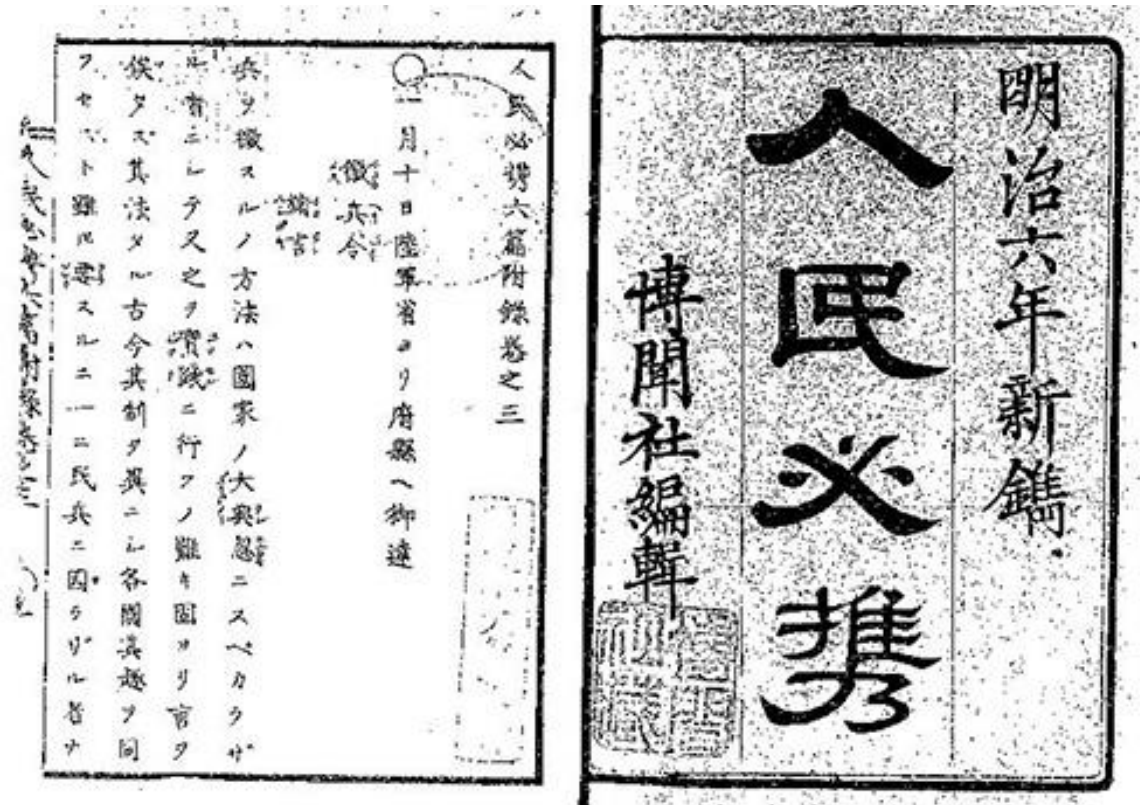 明治六年新鐫
人民必携
博聞社編輯
人民必携六篇附録巻之三
〇一月十日陸軍省ヨリ府縣ヘ御達
徴兵令
緒言
兵ヲ徴スルノ方法ハ國家ノ大典忽ニスベカラザ
ル者ニシテ又之ヲ實践ニ行フノ難キ固ヨリ言ヲ
俟タズ其法タル古今其制ヲ異ニシ各國其趣ヲ同
フセスト雖ㇺ要スルニ一ニ民兵ニ因ラザル者ナ